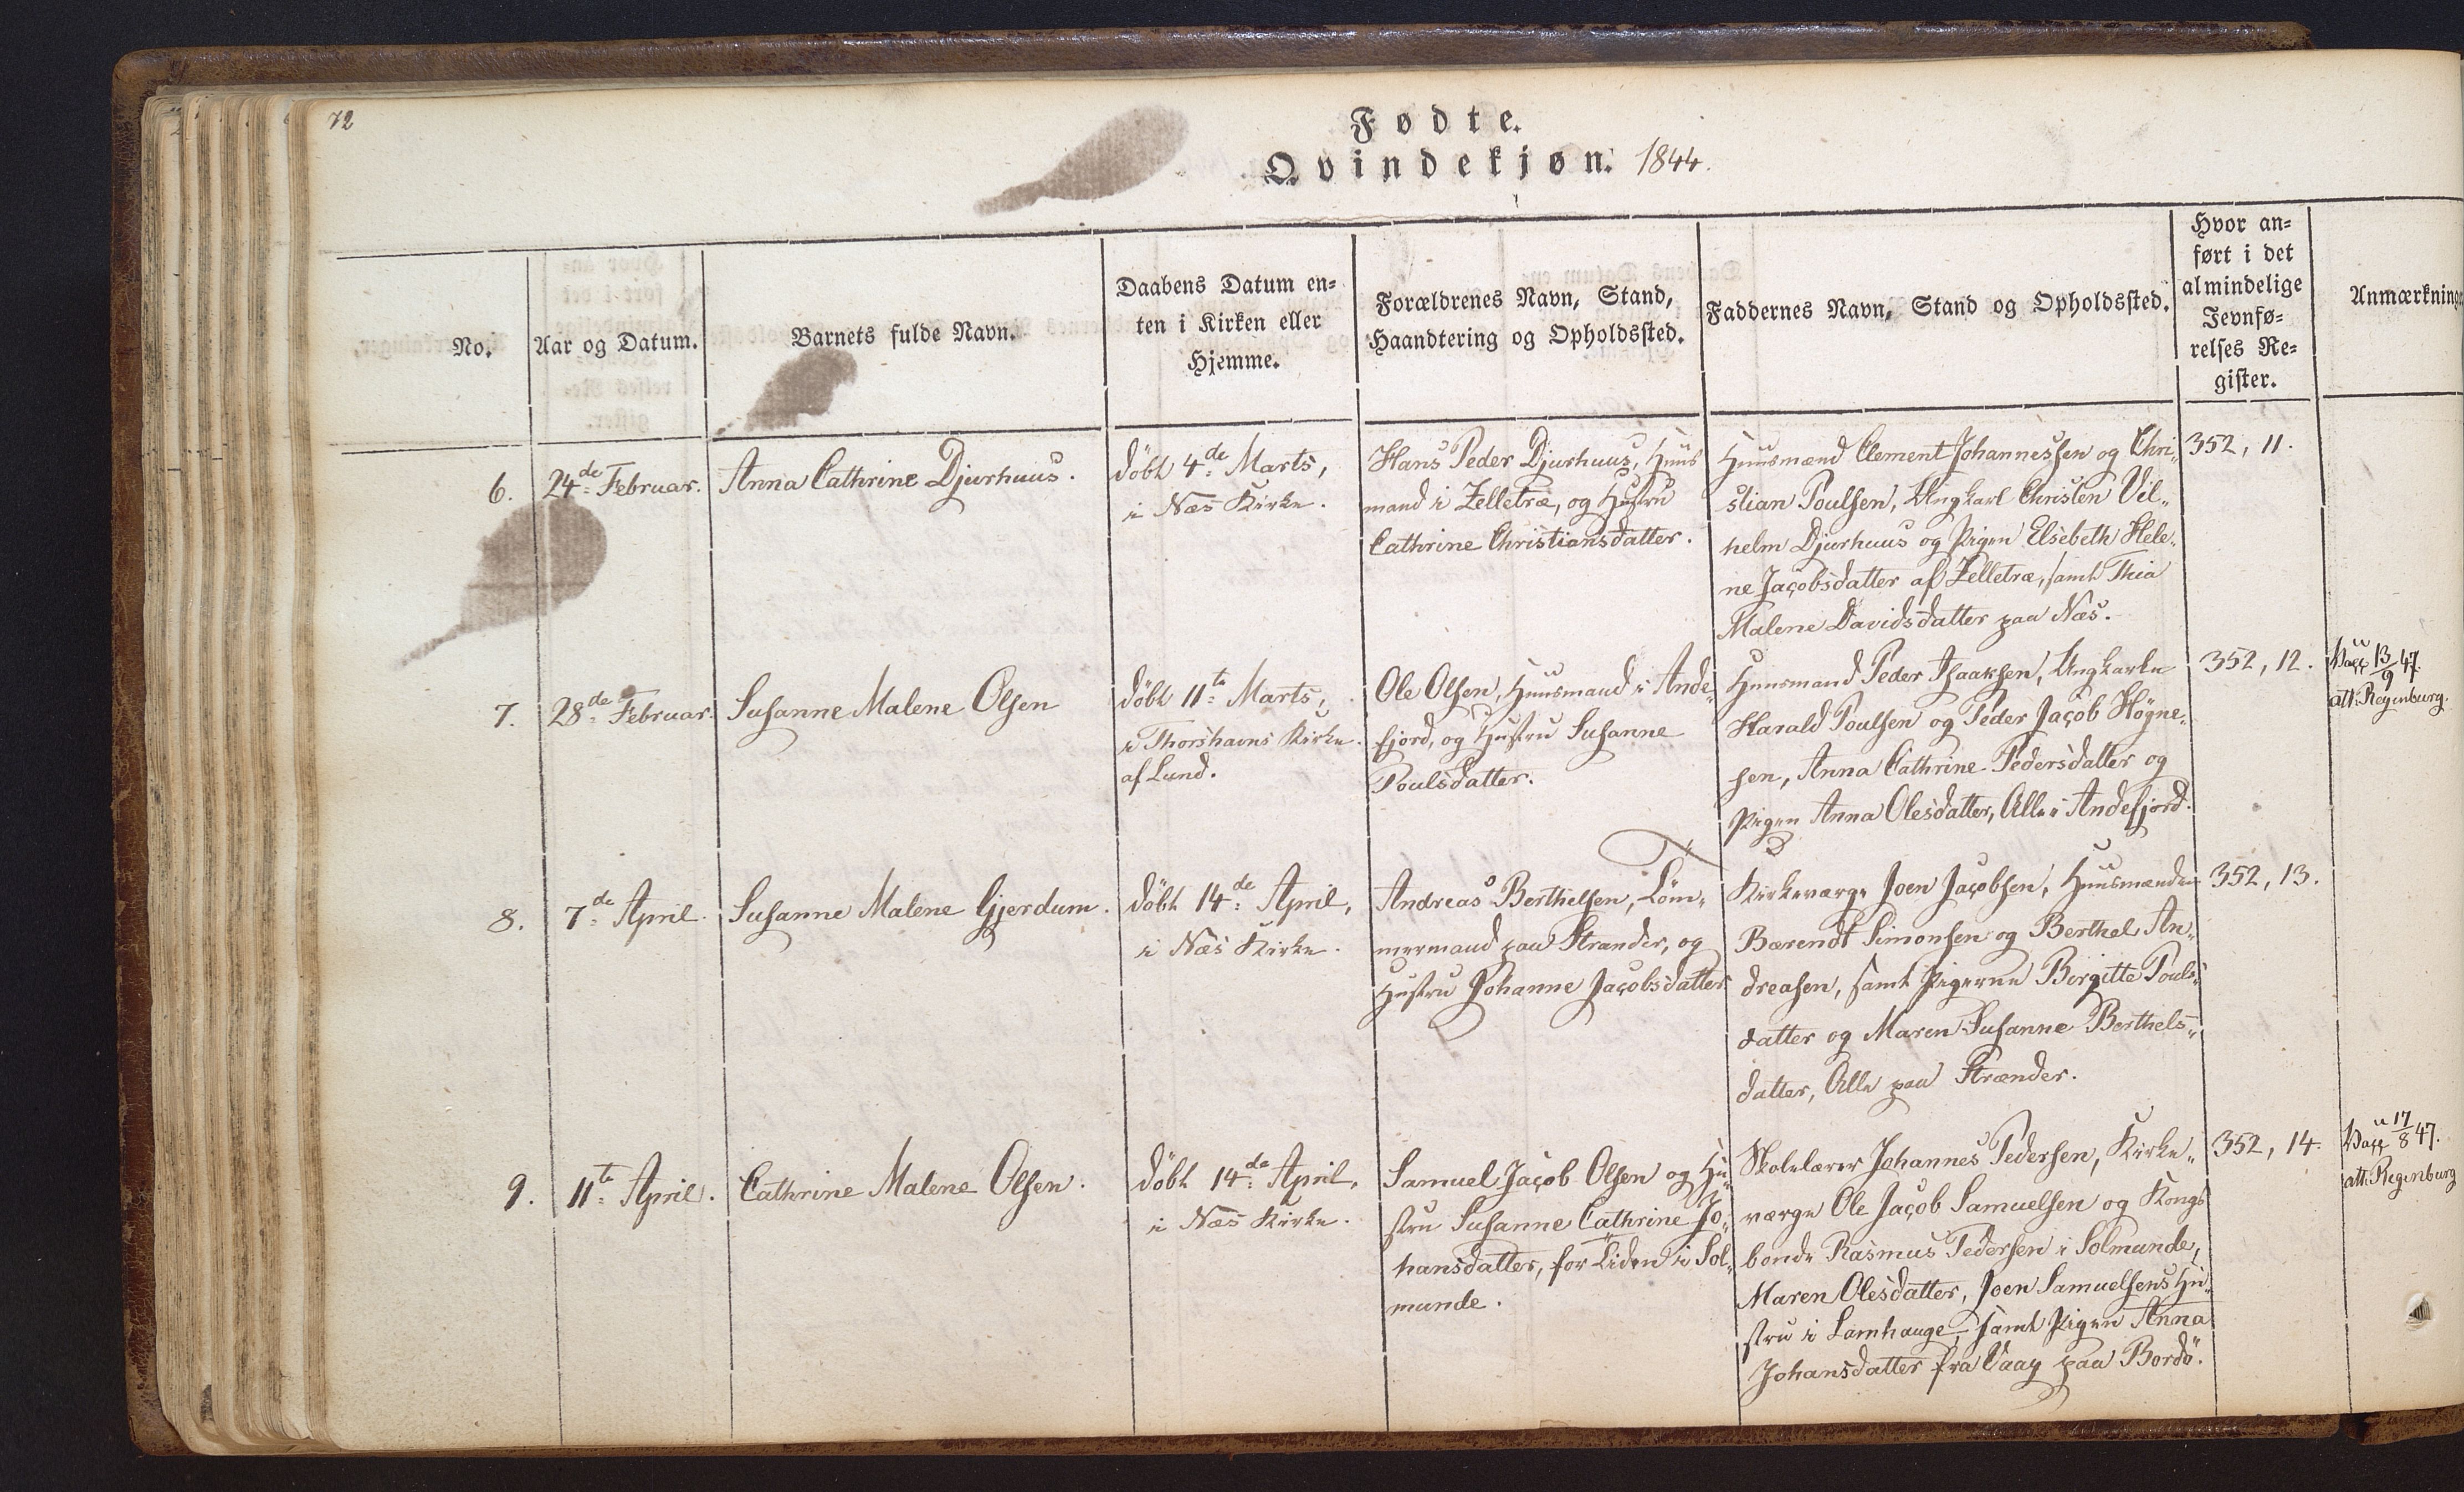 72
Fødte.
Qvindekjøn. 1844.
No.
Aar og Datum.
Barnets fulde Navn.
Daabens Datum en-
ten i Kirken eller
Hjemme.
Forældrenes Navn, Stand,
Haandtering og Opholdssted.
Faddernes Navn, Stand og Opholdssted.
Hvor an-
ført i det
almindelige
Jevnfø-
relses Re-
gister.
Anmærkning
6.
24de Februar.
Anna Cathrine Djurhuus.
döbt 4de Marts,
i Næs Kirke.
Hans Peder Djurhuus, Huus
mand i Zelletræ, og Hustru
Cathrine Christiansdatter.
Huusmænd Clement Johannessen og Chri-
stian Poulsen, Ungkarl Christen Vil-
helm Djurhuus og Pigen Elsebeth Hele-
ne Jacobsdatter af Zelletræ, samt Thia
Malene Davidsdatter paa Næs.
352, 11.
7.
28de Februar.
Susanne Malene Olsen
döbt 11te Marts,
i Thorshavns Kirke
af Lund.
Ole Olsen, Huusmand i Ande-
fjord, og Hustru Susanne
Poulsdatter.
Huusmand Peder Isaaksen, Ungkarle
Harald Poulsen og Peder Jacob Högne-
sen, Anna Cathrine Pedersdatter og
Pigen Anna Olesdatter, Alle i Andefjord.
352, 12.
Vacc 13/9 47.
att. Regenburg.
8.
7de April.
Susanne Malene Gjerdum.
döbt 14de April,
i Næs Kirke.
Andreas Berthelsen, Töm-
mermand paa Strænder, og
Hustru Johanne Jacobsdatter
Kirkeværge Joen Jacobsen, Huusmænden
Bærendt Simonsen og Berthel An-
dreasen, samt Pigerne Birgitte Pouls-
datter og Maren Susanne Berthels-
datter, Alle paa Strænder.
352, 13.
9.
11te April.
Cathrine Malene Olsen.
döbt 14de April,
i Næs Kirke.
Samuel Jacob Olsen og Hu-
stru Susanne Cathrine Jo-
hansdatter, for Tiden i Sol-
munde.
Skolelærer Johannes Pedersen, Kirke-
værge Ole Jacob Samuelsen og Kongs
bonde Rasmus Pedersen i Solmunde,
Maren Olesdatter, Joen Samuelsens Hu-
stru i Lamhauge, samt Pigen Anna
Johansdatter fra Vaag paa Bordö.
352, 14.
Vacc 17/8 47.
att. Regenburg